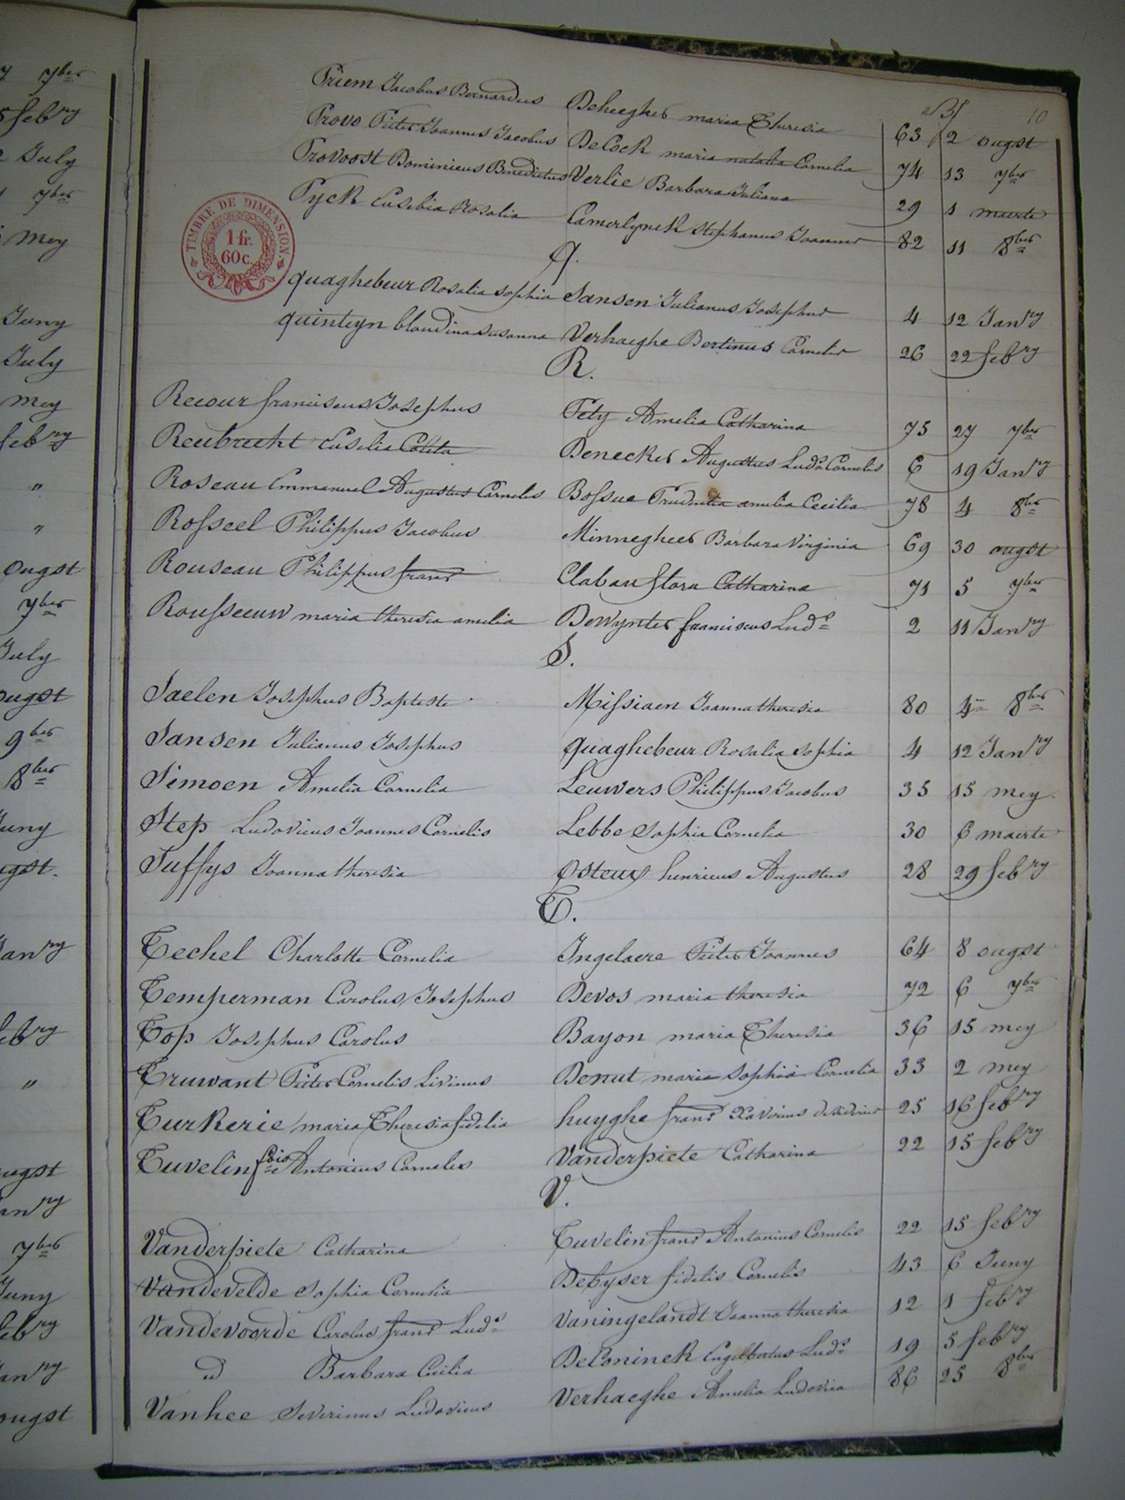 10
Priem Jacobus Bernardus Deheegher maria Theresia 63 2 ougst
Provo Pieter Joannes Jacobus DeCock maria natalia Cornelia 74 13 7ber
Provoost Dominicus Benedictus Verlie Barbara Juliana 29 1 maerte
Pyck Eusebia Rosalia Camerlynck Stephanus Joannes 82 11 8ber
TIMBRE DE DIMENSION
1 fr.
60 c.
Q.
quaghebeur Rosalia sophia Sansen Julianus Josephus 4 12 Janry
quinteyn blandina susanna Verhaeghe Bertinus Cornelis 26 22 febry
R.
Recour franciscus Josephus Pety Amelia Catharina 75 27 7ber
Reubrecht Euselia Coleta Denecker Augustus Ludc Cornelis 6 19 Janry
Roseau Emmanuel Augustus Cornelis Bossue Prudentia amelia Cecilia 78 4 8ber
Rosseel Philippus Jacobus Minnegheer Barbara Virginia 69 30 ougst
Rouseau Philippus frans Clabau flora Catharina 71 5 7ber
Rousseeuw maria theresia amelia DeWynter franciscus Ludc 2 11 Janry
S.
Saelen Josephus Baptiste Missiaen Joanna theresia 80 4 8ber
Sansen Julianus Josephus quaghebeur Rosalia sophia 4 12 Janry
Simoen Amelia Cornelia Leuwers Philippus Jacobus 35 15 mey
Step Ludovicus Joannes Cornelis Lebbe sophia Cornelia 30 6 maerte
Suffys Joanna theresia Osteux henricus Augustus 28 29 febry
T.
Techel Charlotte Cornelia Ingelaere Pieter Joannes 64 8 ougst
Temperman Carolus Josephus Devos maria theresia 72 6 7ber
Top Josephus Carolus Bayon maria Theresia 36 15 mey
Truwant Pieter Cornelis Livinus Denut maria sophia Cornelia 33 2 mey
Turkerie maria Theresia fidelia huyghe frans Xaverius desiderius 25 16 febry
Tuvelin fcio Antonius Cornelis Vanderpiete Catharina 22 15 febry
V.
Vanderpiete Catharina Tuvelin frans Antonius Cornelis 22 15 febry
Vandevelde Sophia Cornelia DeKyser fidelis Cornelis 43 6 Juny
Vandevoorde Carolus frans Ludc Vaningelandt Joanna theresia 12 1 febry
id Barbara Cecilia DeConinck Engelbertus Ludc 19 5 febry
Vanhee Severinus Ludovicus Verhaeghe Amelia Ludovica 86 25 8ber